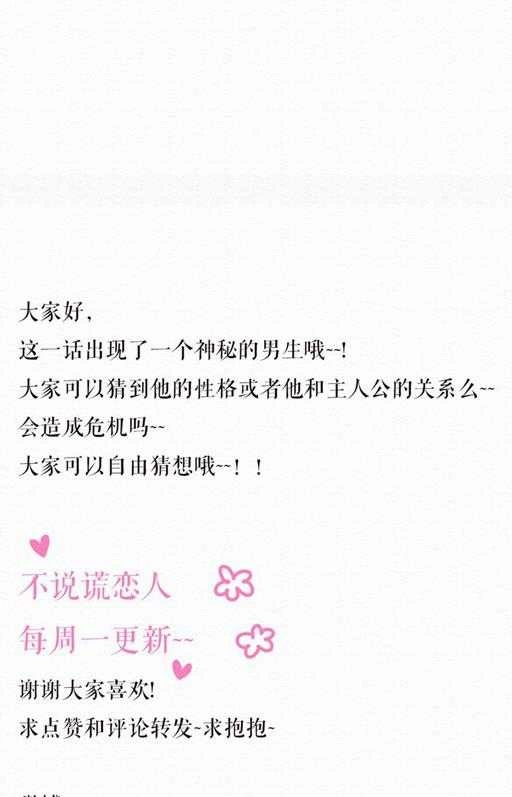 大家好，
这一话出现了一个神秘的男生哦~~!
大家可以猜到他的性格或者他和主人公的关系么~~
会造成危机吗~~
大家可以自由猜想哦~~！！
不说谎恋人
每周一更新~~
谢谢大家喜欢!
求点赞和评论转发~求抱抱~